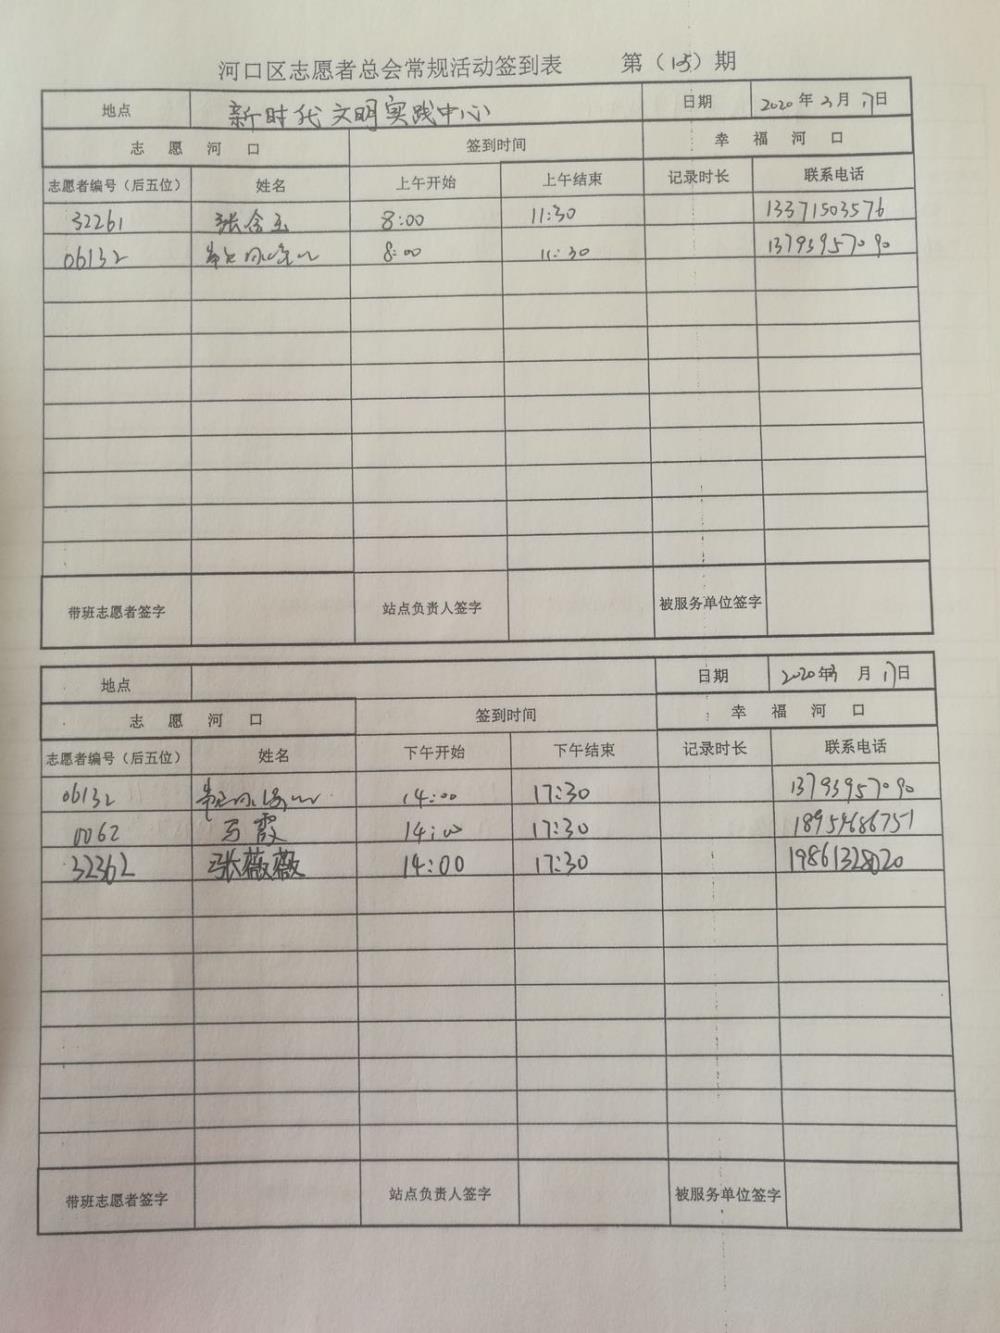 河口区志愿者总会常规活动签到表 第（15）期
地点 新时代文明实践中心 日期 2020年3月17日
志愿河口 签到时间 幸福河口
志愿者编号（后五位） 姓名 上午开始 上午结束 记录时长 联系电话
32261 张含玉 8:00 11:30 13371503576
06132 8:00 11:30 13793957090
带班志愿者签字 站点负责人签字 被服务单位签字
地点 日期 2020年3月17日
志愿河口 签到时间 幸福河口
志愿者编号（后五位） 姓名 下午开始 下午结束 记录时长 联系电话
06132 14:00 17:30 13793957090
0062 马霞 14:00 17:30 18954686751
32362 张薇薇 14:00 17:30 19861328020
带班志愿者签字 站点负责人签字 被服务单位签字